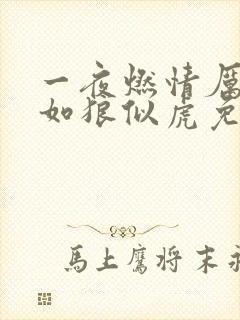 一夜燃情厲
如狼似虎免
馬上鷹将末